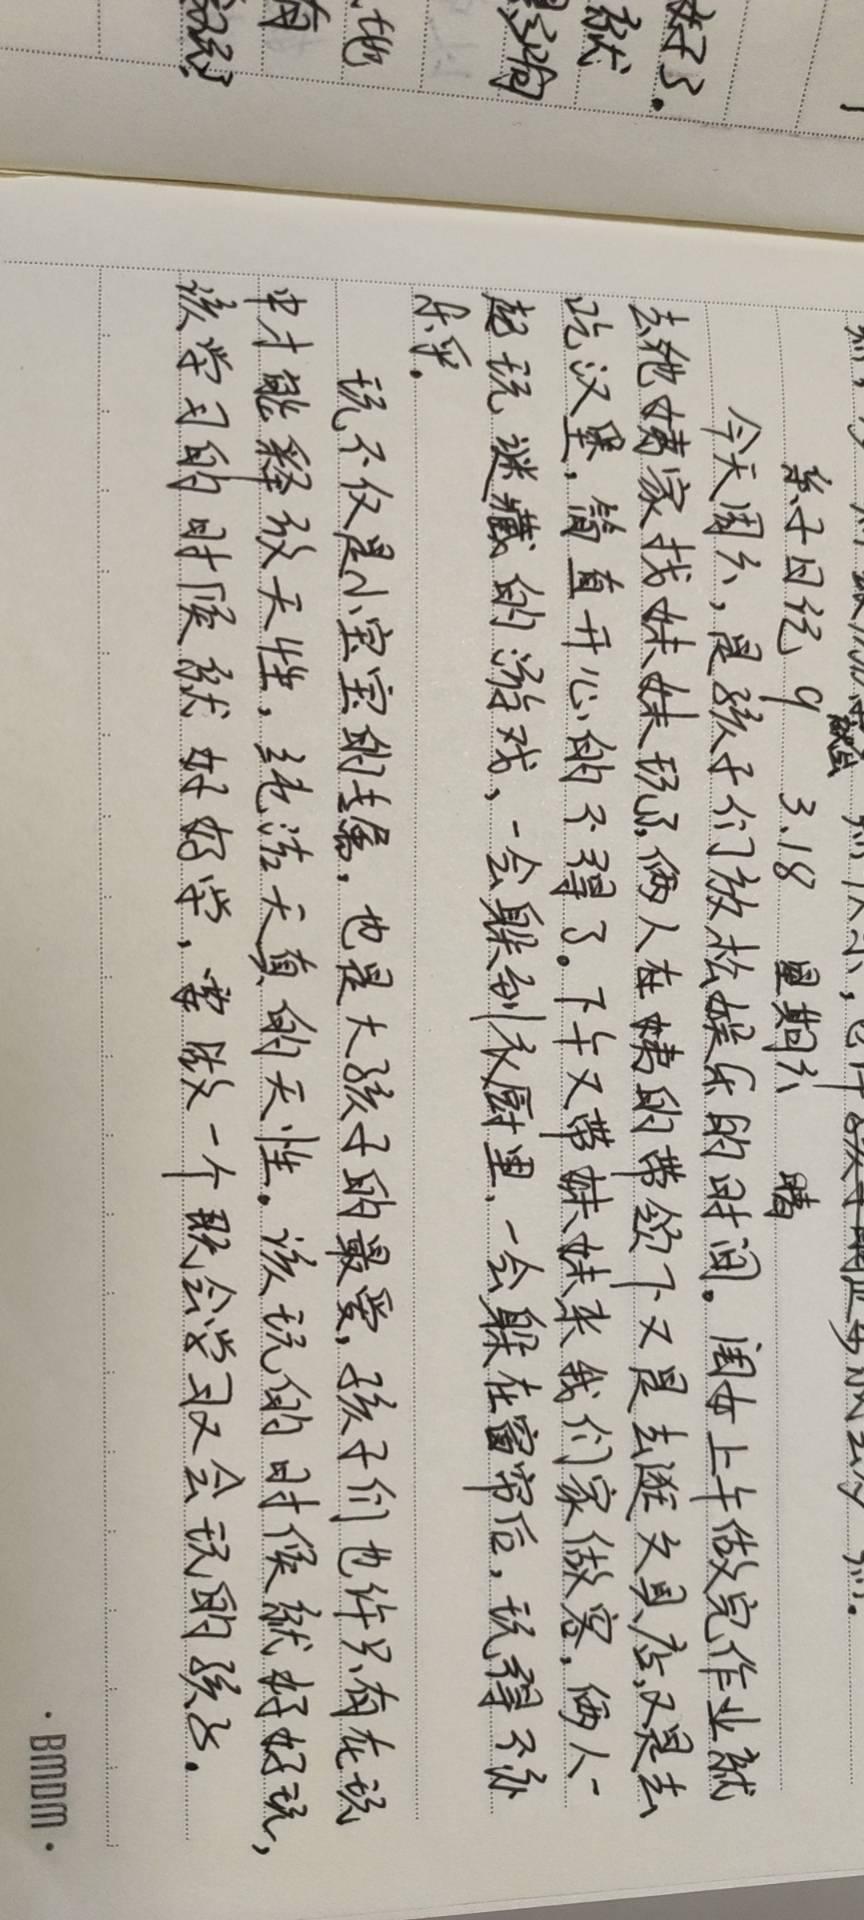 亲子日记 9 3.18 星期六 晴
今天周六，是孩子们放松娱乐的时间。闺女上午做完作业就
去她姨家找妹妹玩了，俩人在姨的带领下又是去逛文具店，又是去
吃汉堡，简直开心的不得了。下午又带妹妹来我们家做客，俩人一
起玩谜藏的游戏，一会躲到衣厨里，一会躲在窗帘后，玩得不亦
乐乎。
玩不仅是小宝宝的专属，也是大孩子的最爱，孩子们也许只有在玩
中才能释放天性，纯洁天真的天性。该玩的时候就好好玩，
该学习的时候就好好学，要做一个既会学习又会玩的孩子。
· BMDM ·
好了。
就